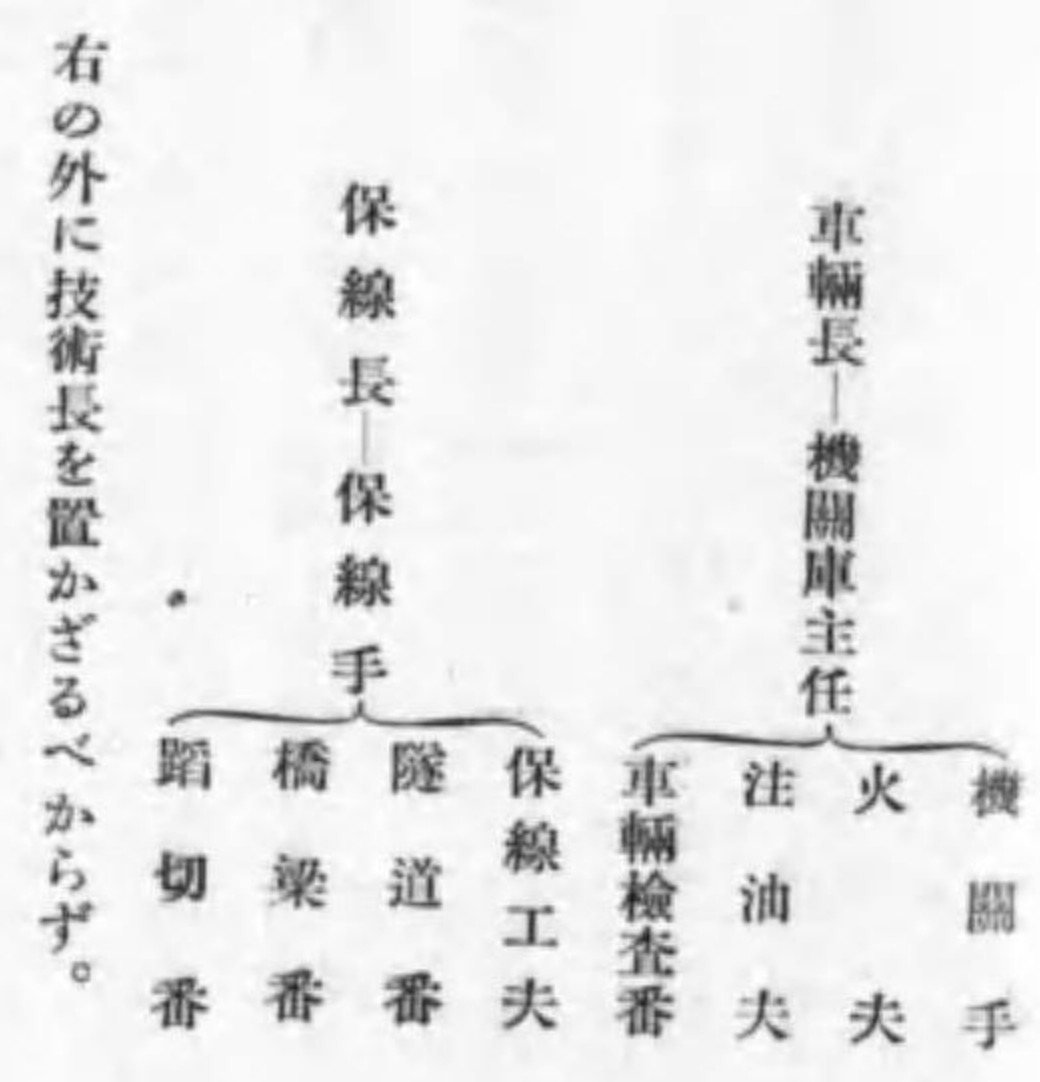 車輛長―機關庫主任
機關手
火夫
注油夫
車輛檢査番
保線長―保線手
保線工夫
隧道番
橋梁番
蹈切番
右の外に技術長を置かざるべからず。